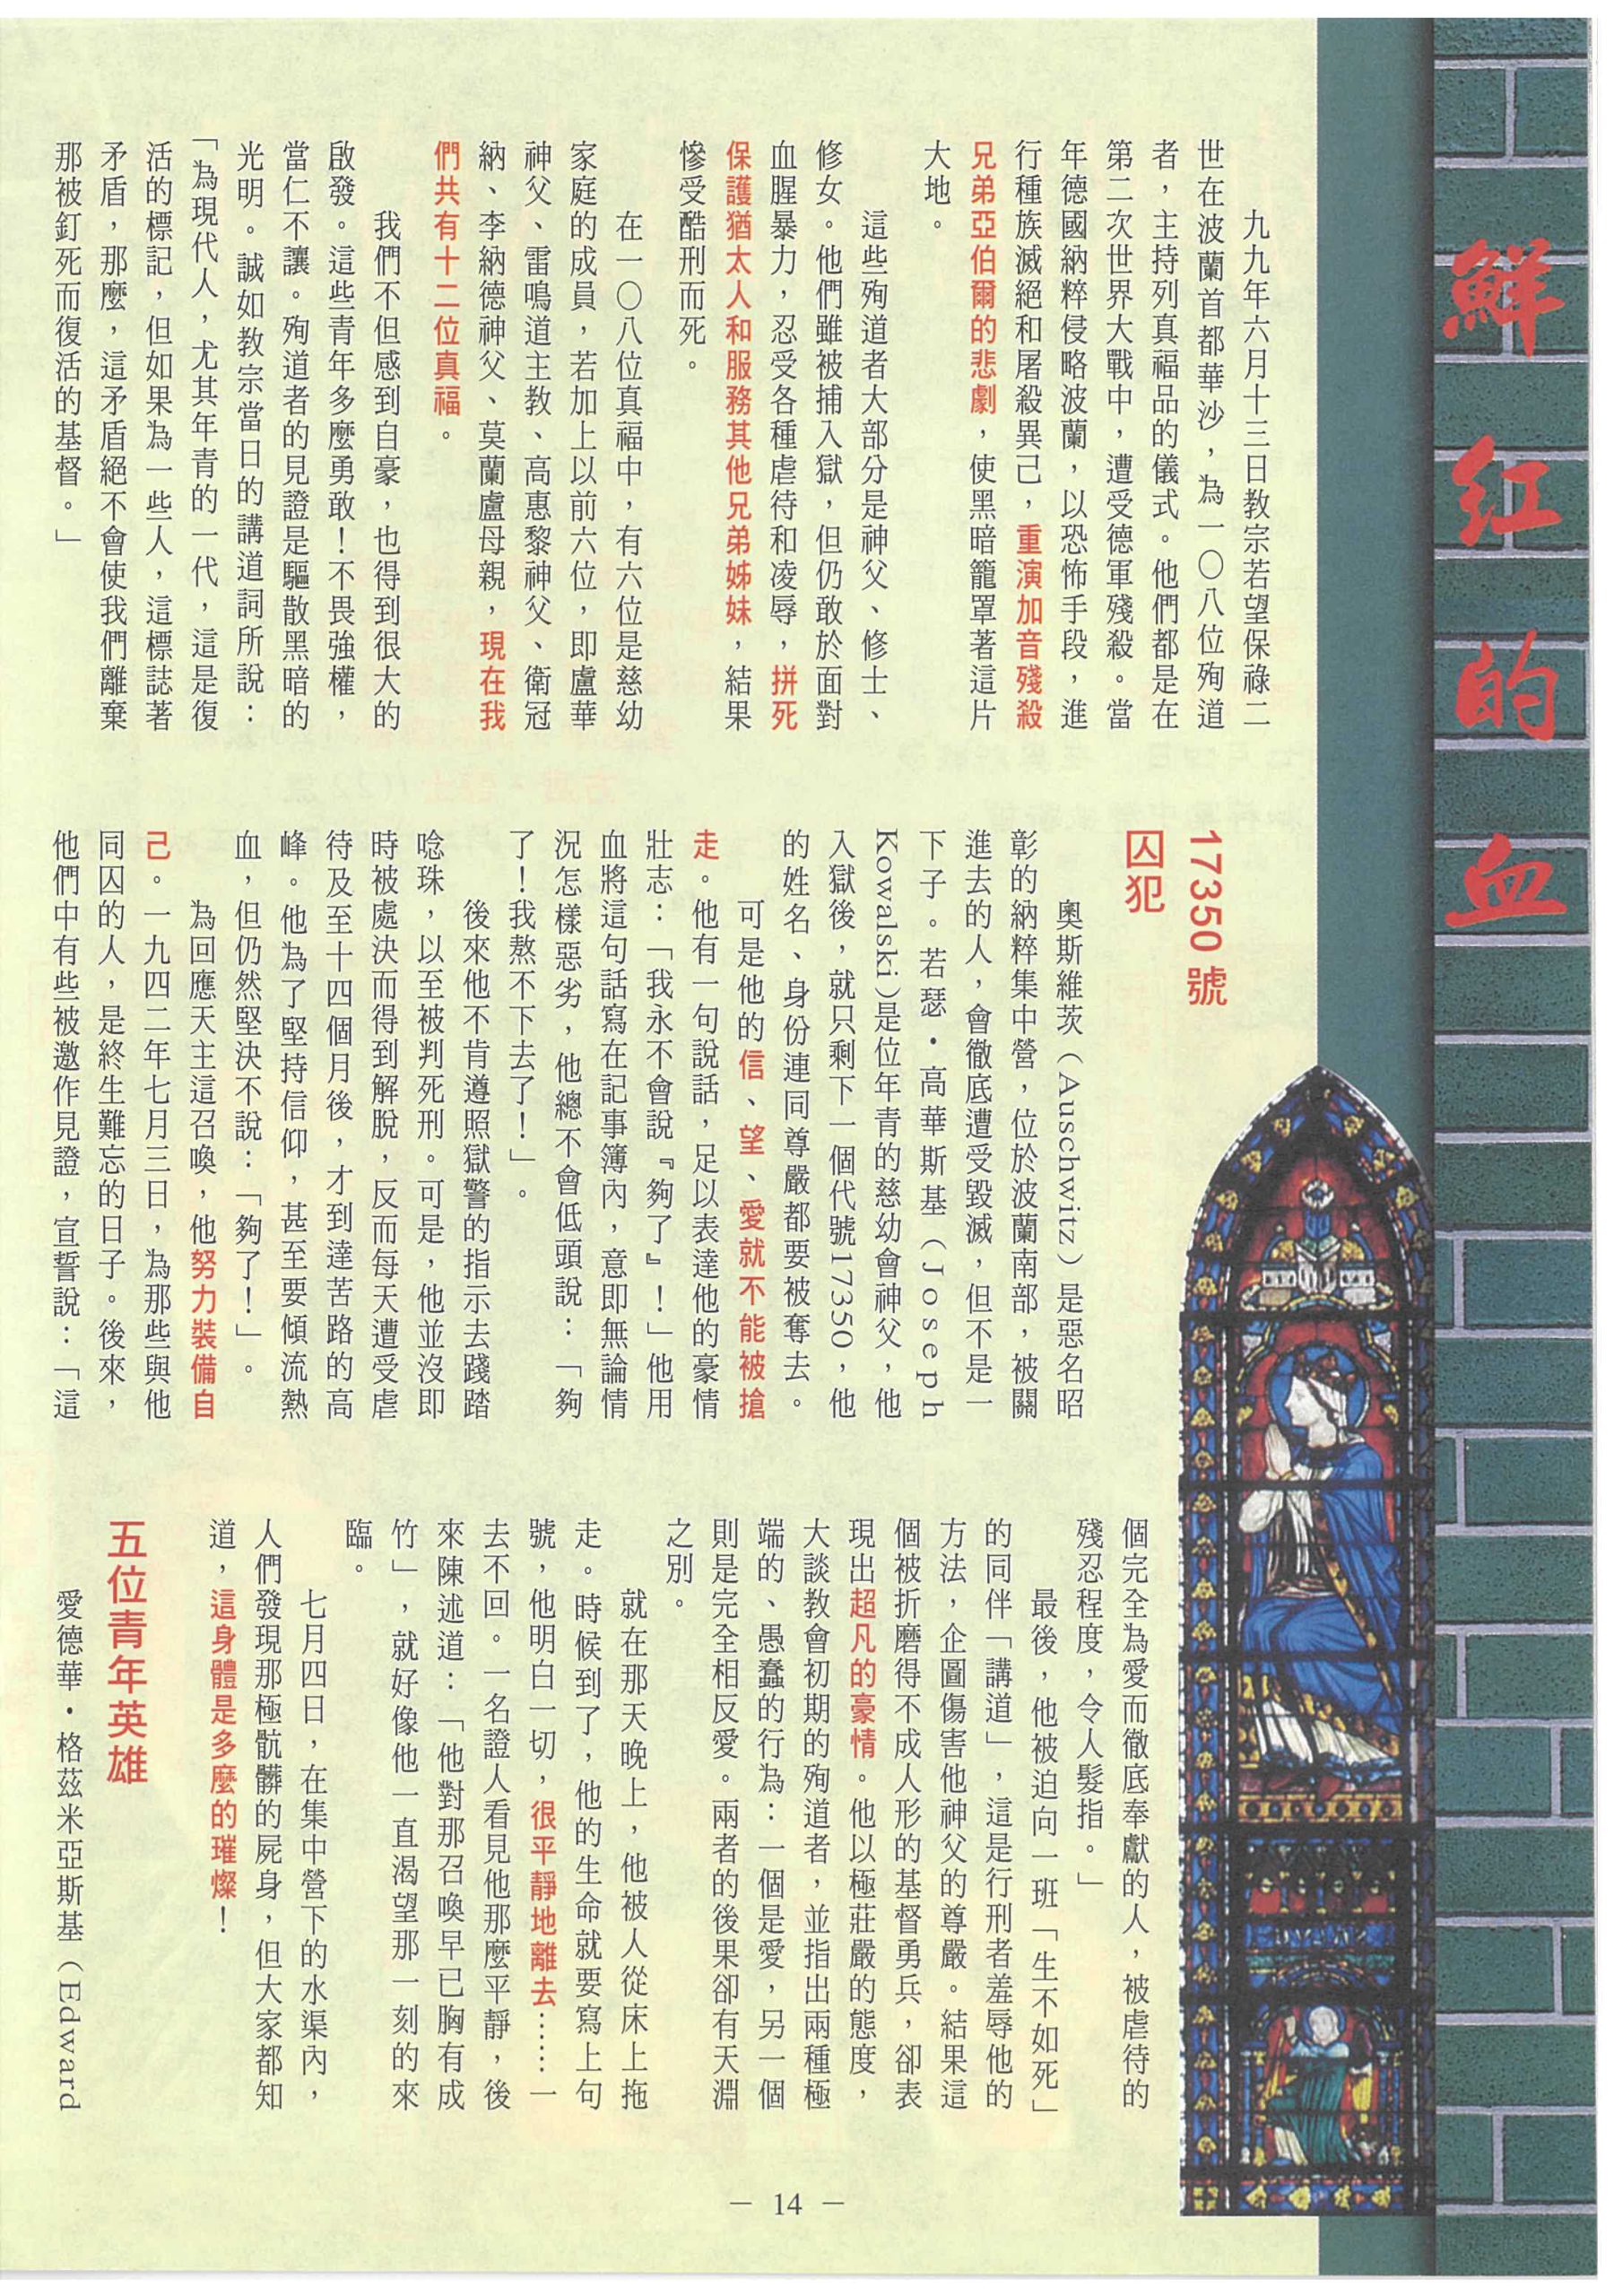 鮮紅的血
九九年六月十三日教宗若望保祿二
世在波蘭首都華沙，為一〇八位殉道
者，主持列真福品的儀式。他們都是在
第二次世界大戰中，遭受德軍殘殺。當
年德國納粹侵略波蘭，以恐怖手段，進
行種族滅絕和屠殺異己，重演加音殘殺
兄弟亞伯爾的悲劇，使黑暗籠罩著這片
大地。
這些殉道者大部分是神父、修士、
修女。他們雖被捕入獄，但仍敢於面對
血腥暴力，忍受各種虐待和凌辱，拼死
保護猶太人和服務其他兄弟姊妹，結果
慘受酷刑而死。
在一〇八位真福中，有六位是慈幼
家庭的成員，若加上以前六位，即盧華
神父、雷鳴道主教、高惠黎神父、衛冠
納、李納德神父、莫蘭盧母親，現在我
們共有十二位真福。
我們不但感到自豪，也得到很大的
啟發。這些青年多麼勇敢！不畏強權，
當仁不讓。殉道者的見證是驅散黑暗的
光明。誠如教宗當日的講道詞所說：
「為現代人，尤其年青的一代，這是復
活的標記，但如果為一些人，這標誌著
矛盾，那麼，這矛盾絕不會使我們離棄
那被釘死而復活的基督。」
17350 號
囚犯
奧斯維茨（Auschwitz）是惡名昭
彰的納粹集中營，位於波蘭南部，被關
進去的人，會徹底遭受毀滅，但不是一
下子。若瑟・高華斯基（Joseph
Kowalski)是位年青的慈幼會神父，他
入獄後，就只剩下一個代號17350，他
的姓名、身份連同尊嚴都要被奪去。
可是他的信、望、愛就不能被搶
走。他有一句說話，足以表達他的豪情
壯志：「我永不會說『夠了』！」他用
血將這句話寫在記事簿內，意即無論情
況怎樣惡劣，他總不會低頭說：「夠
了！我熬不下去了！」。
後來他不肯遵照獄警的指示去踐踏
唸珠，以至被判死刑。可是，他並沒即
時被處決而得到解脫，反而每天遭受虐
待及至十四個月後，才到達苦路的高
峰。他為了堅持信仰，甚至要傾流熱
血，但仍然堅決不說：「夠了！」。
為回應天主這召喚，他努力裝備自
己。一九四二年七月三日，為那些與他
同囚的人，是終生難忘的日子。後來，
他們中有些被邀作見證，宣誓說：「這
個完全為愛而徹底奉獻的人，被虐待的
殘忍程度，令人髮指。」
最後，他被迫向一班「生不如死」
的同伴「講道」，這是行刑者羞辱他的
方法，企圖傷害他神父的尊嚴。結果這
個被折磨得不成人形的基督勇兵，卻表
現出超凡的豪情。他以極莊嚴的態度，
大談教會初期的殉道者，並指出兩種極
端的、愚蠢的行為：一個是愛，另一個
則是完全相反愛。兩者的後果卻有天淵
之別。
就在那天晚上，他被人從床上拖
走。時候到了，他的生命就要寫上句
號，他明白一切，很平靜地離去……一
去不回。一名證人看見他那麼平靜，後
來陳述道：「他對那召喚早已胸有成
竹」，就好像他一直渴望那一刻的來
臨。
七月四日，在集中營下的水渠內，
人們發現那極骯髒的屍身，但大家都知
道，這身體是多麼的璀燦！
五位青年英雄
愛德華・格茲米亞斯基（Edward
— 14 —